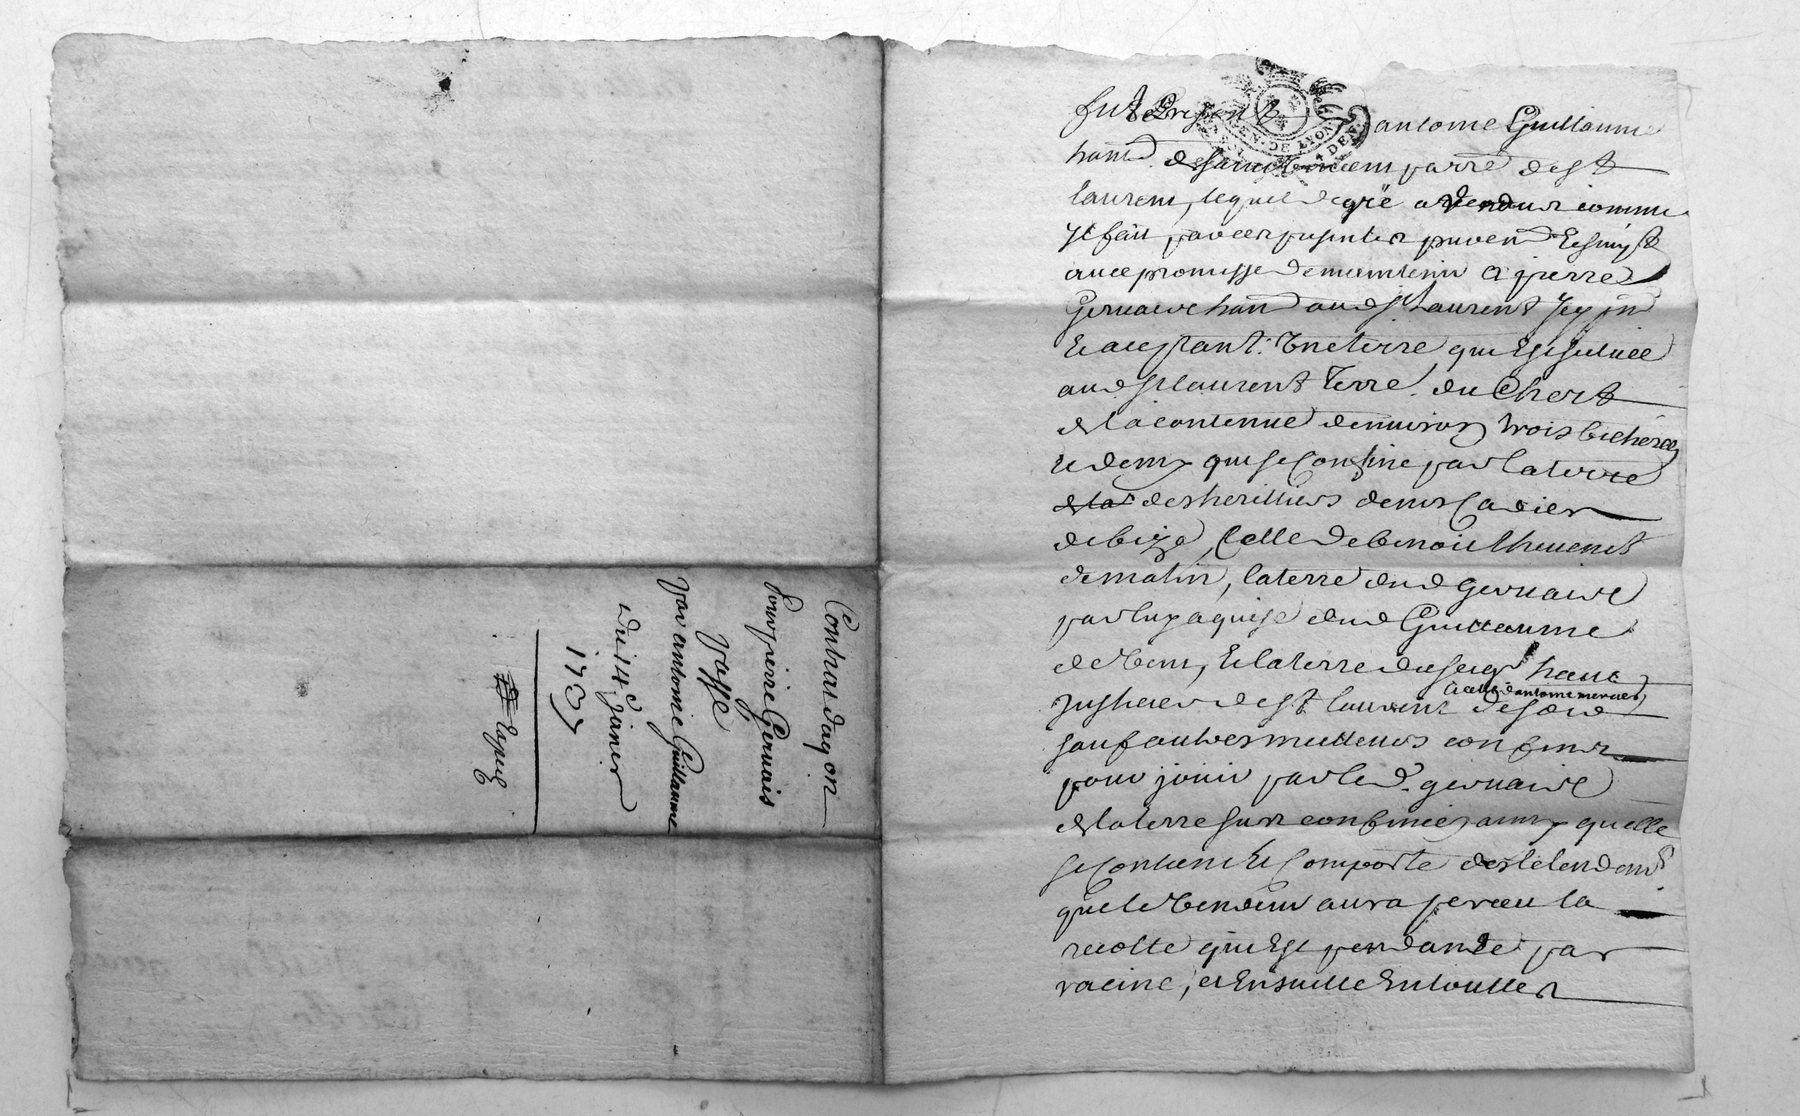 Contrat daqon
pour pierre Gervais
passé
par antoine Guillaume
du 14e janer
1737
fut present antoine Guillaume
hant de parre de st
laurent, lequel de gré a vendu comme
yl fait par ces presentes purem et simpt
avec promesse de maintenir a pierre
Gervais hant aud st Laurent icy pnt
et aceptant. Une terre qui est scituee
aud st laurent Terre du Chert
de la contenue denviron trois bicherees
et demy qui se confine par la terre
des heritiers de mr Cadier
de bize, Celle de benoit thevenet
de matin, la terre dud gervais
par luy aquise dud Guillaume
de vent, et la terre du seigr haut
et celle dantoine mercier
justicier de st laurent de soir
sauf autres meilleurs confins
pour jouir par led. gervais
de la terre sus confinée ainsy quelle
se contient et comporte des le lendemt
que le vendeur aura perceu la
recolte qui est pendante par
racine, et ensuitte en touttes